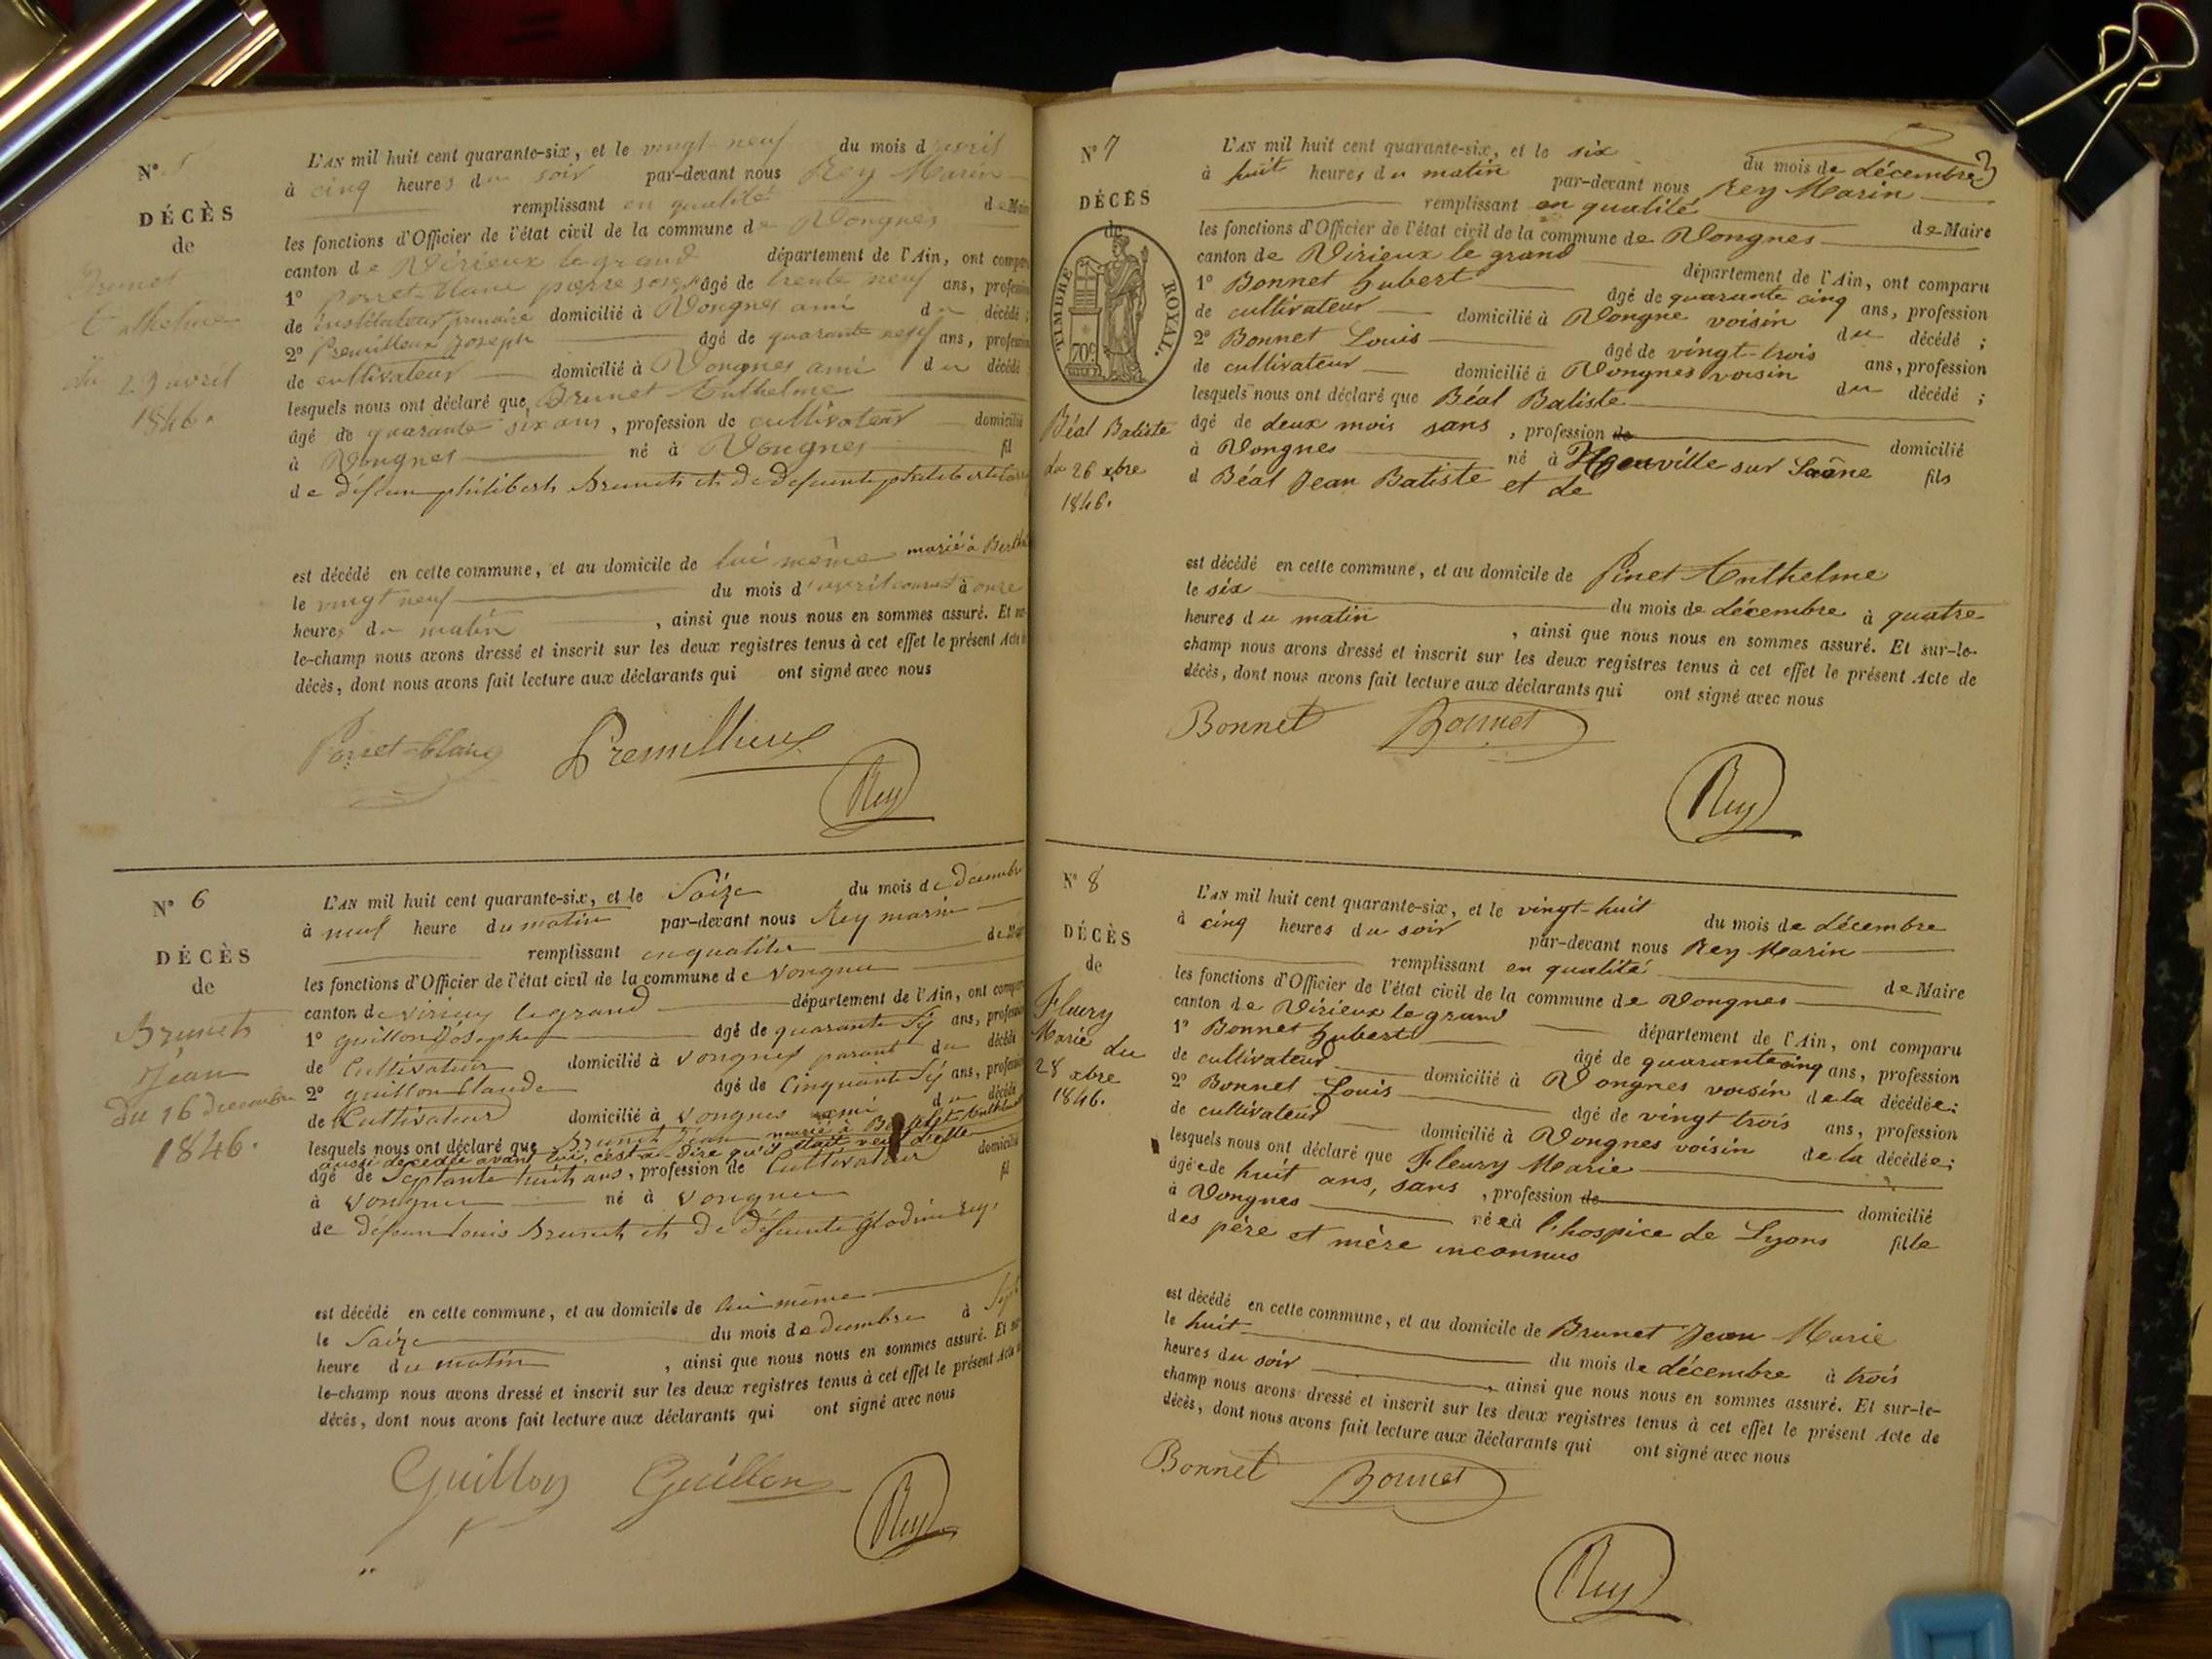 N° 5
DÉCÈS
de
Brunet
Enthelme
du 29 avril
1846.
L'AN mil huit cent quarante-six, et le vingt neuf du mois d'avril
à cinq heures du soir par-devant nous Rey Marin
remplissant en qualité de Maire
les fonctions d'Officier de l'état civil de la commune de Vongnes
canton de Virieux le grand département de l'Ain, ont
1° porret-blanc pierre âgé de trente neuf ans,
de instituteur primaire domicilié à Vongnes ami du décédé ;
2° Premillieux Joseph âgé de quarante neuf ans,
de cultivateur domicilié à Vongnes ami du décédé
lesquels nous ont déclaré que Brunet Enthelme
âgé de quarante six ans, profession de cultivateur domicilié
à Vongnes né à Vongnes fil
de défeun philibert Brunet et de defeunte
est décédé en cette commune, et au domicile de lui même marié à
le vingt neuf du mois d'avril courant à onze
heures du matin , ainsi que nous nous en sommes assuré. Et
le-champ nous avons dressé et inscrit sur les deux registres tenus à cet effet le présent Acte
décès, dont nous avons fait lecture aux déclarants qui ont signé avec nous
Porret-blanc Premillieux
Rey
N° 6
DÉCÈS
de
Brunet
Jean
du 16 decembre
1846.
L'AN mil huit cent quarante-six, et le Saize du mois de décembre
à neuf heure du matin par-devant nous Rey marin
remplissant en qualiter
les fonctions d'Officier de l'état civil de la commune de Vongnes
canton de Virieu le grand département de l'Ain, ont
1° guillon Joseph âgé de quarante Sy ans,
de Cultivateur domicilié à Vongnes parant du décédé
2° guillon Claude âgé de Cinquante Sy ans,
de Cultivateur domicilié à Vongnes ami du décédé
lesquels nous ont déclaré que Brunet Jean marié à
aussi décédée avant lui, c'est-à-dire qu'il était veuf d'elle
âgé de Septante huit ans, profession de Cultivateur domicilié
à Vongnes né à Vongnes fil
de défeun Louis Brunet et de défeunte glodine Rey,
est décédé en cette commune, et au domicile de lui même
le Saize du mois de decembre à
heure du matin , ainsi que nous nous en sommes assuré. Et
le-champ nous avons dressé et inscrit sur les deux registres tenus à cet effet le présent Acte
décès, dont nous avons fait lecture aux déclarants qui ont signé avec nous
Guillon Guillon
Rey
N° 7
DÉCÈS
de
TIMBRE ROYAL.
70c
Béal Batiste
du 26 xbre
1846.
L'AN mil huit cent quarante-six, et le six du mois de décembre
à huit heures du matin par-devant nous Rey Marin
remplissant en qualité de Maire
les fonctions d'Officier de l'état civil de la commune de Vongnes
canton de Virieux le grand département de l'Ain, ont comparu
1° Bonnet hubert âgé de quarante cinq ans, profession
de cultivateur domicilié à Vongne voisin du décédé ;
2° Bonnet Louis âgé de vingt-trois ans, profession
de cultivateur domicilié à Vongnes voisin du décédé ;
lesquels nous ont déclaré que Béal Batiste
âgé de deux mois sans , profession de domicilié
à Vongnes né à Neuville sur Saône fils
d Béal Jean Batiste et de
est décédé en cette commune, et au domicile de Pinet Enthelme
le six du mois de décembre à quatre
heures du matin , ainsi que nous nous en sommes assuré. Et sur-le-
champ nous avons dressé et inscrit sur les deux registres tenus à cet effet le présent Acte de
décès, dont nous avons fait lecture aux déclarants qui ont signé avec nous
Bonnet Bonnet
Rey
N° 8
DÉCÈS
de
Fleury
Marie du
28 xbre
1846.
L'AN mil huit cent quarante-six, et le vingt-huit du mois de décembre
à cinq heures du soir par-devant nous Rey Marin
remplissant en qualité de Maire
les fonctions d'Officier de l'état civil de la commune de Vongnes
canton de Virieux le grand département de l'Ain, ont comparu
1° Bonnet hubert âgé de quarante cinq ans, profession
de cultivateur domicilié à Vongnes voisin de la décédée;
2° Bonnet Louis âgé de vingt trois ans, profession
de cultivateur domicilié à Vongnes voisin de la décédée;
lesquels nous ont déclaré que Fleury Marie
âgée de huit ans, sans , profession de domicilié
à Vongnes née à l'hospice de Lyons fille
des père et mère inconnus
est décédé en cette commune, et au domicile de Brunet Jean Marie
le huit du mois de décembre à trois
heures du soir , ainsi que nous nous en sommes assuré. Et sur-le-
champ nous avons dressé et inscrit sur les deux registres tenus à cet effet le présent Acte de
décès, dont nous avons fait lecture aux déclarants qui ont signé avec nous
Bonnet Bonnet
Rey